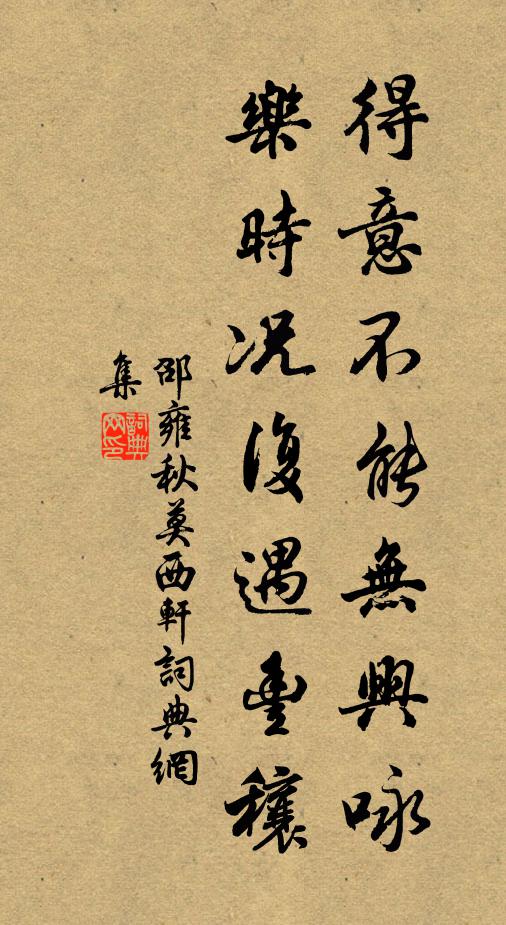 得意不能無興咏
樂時况復遇豊穰
邵雍秋莫西軒詞典網
集
詞典网印